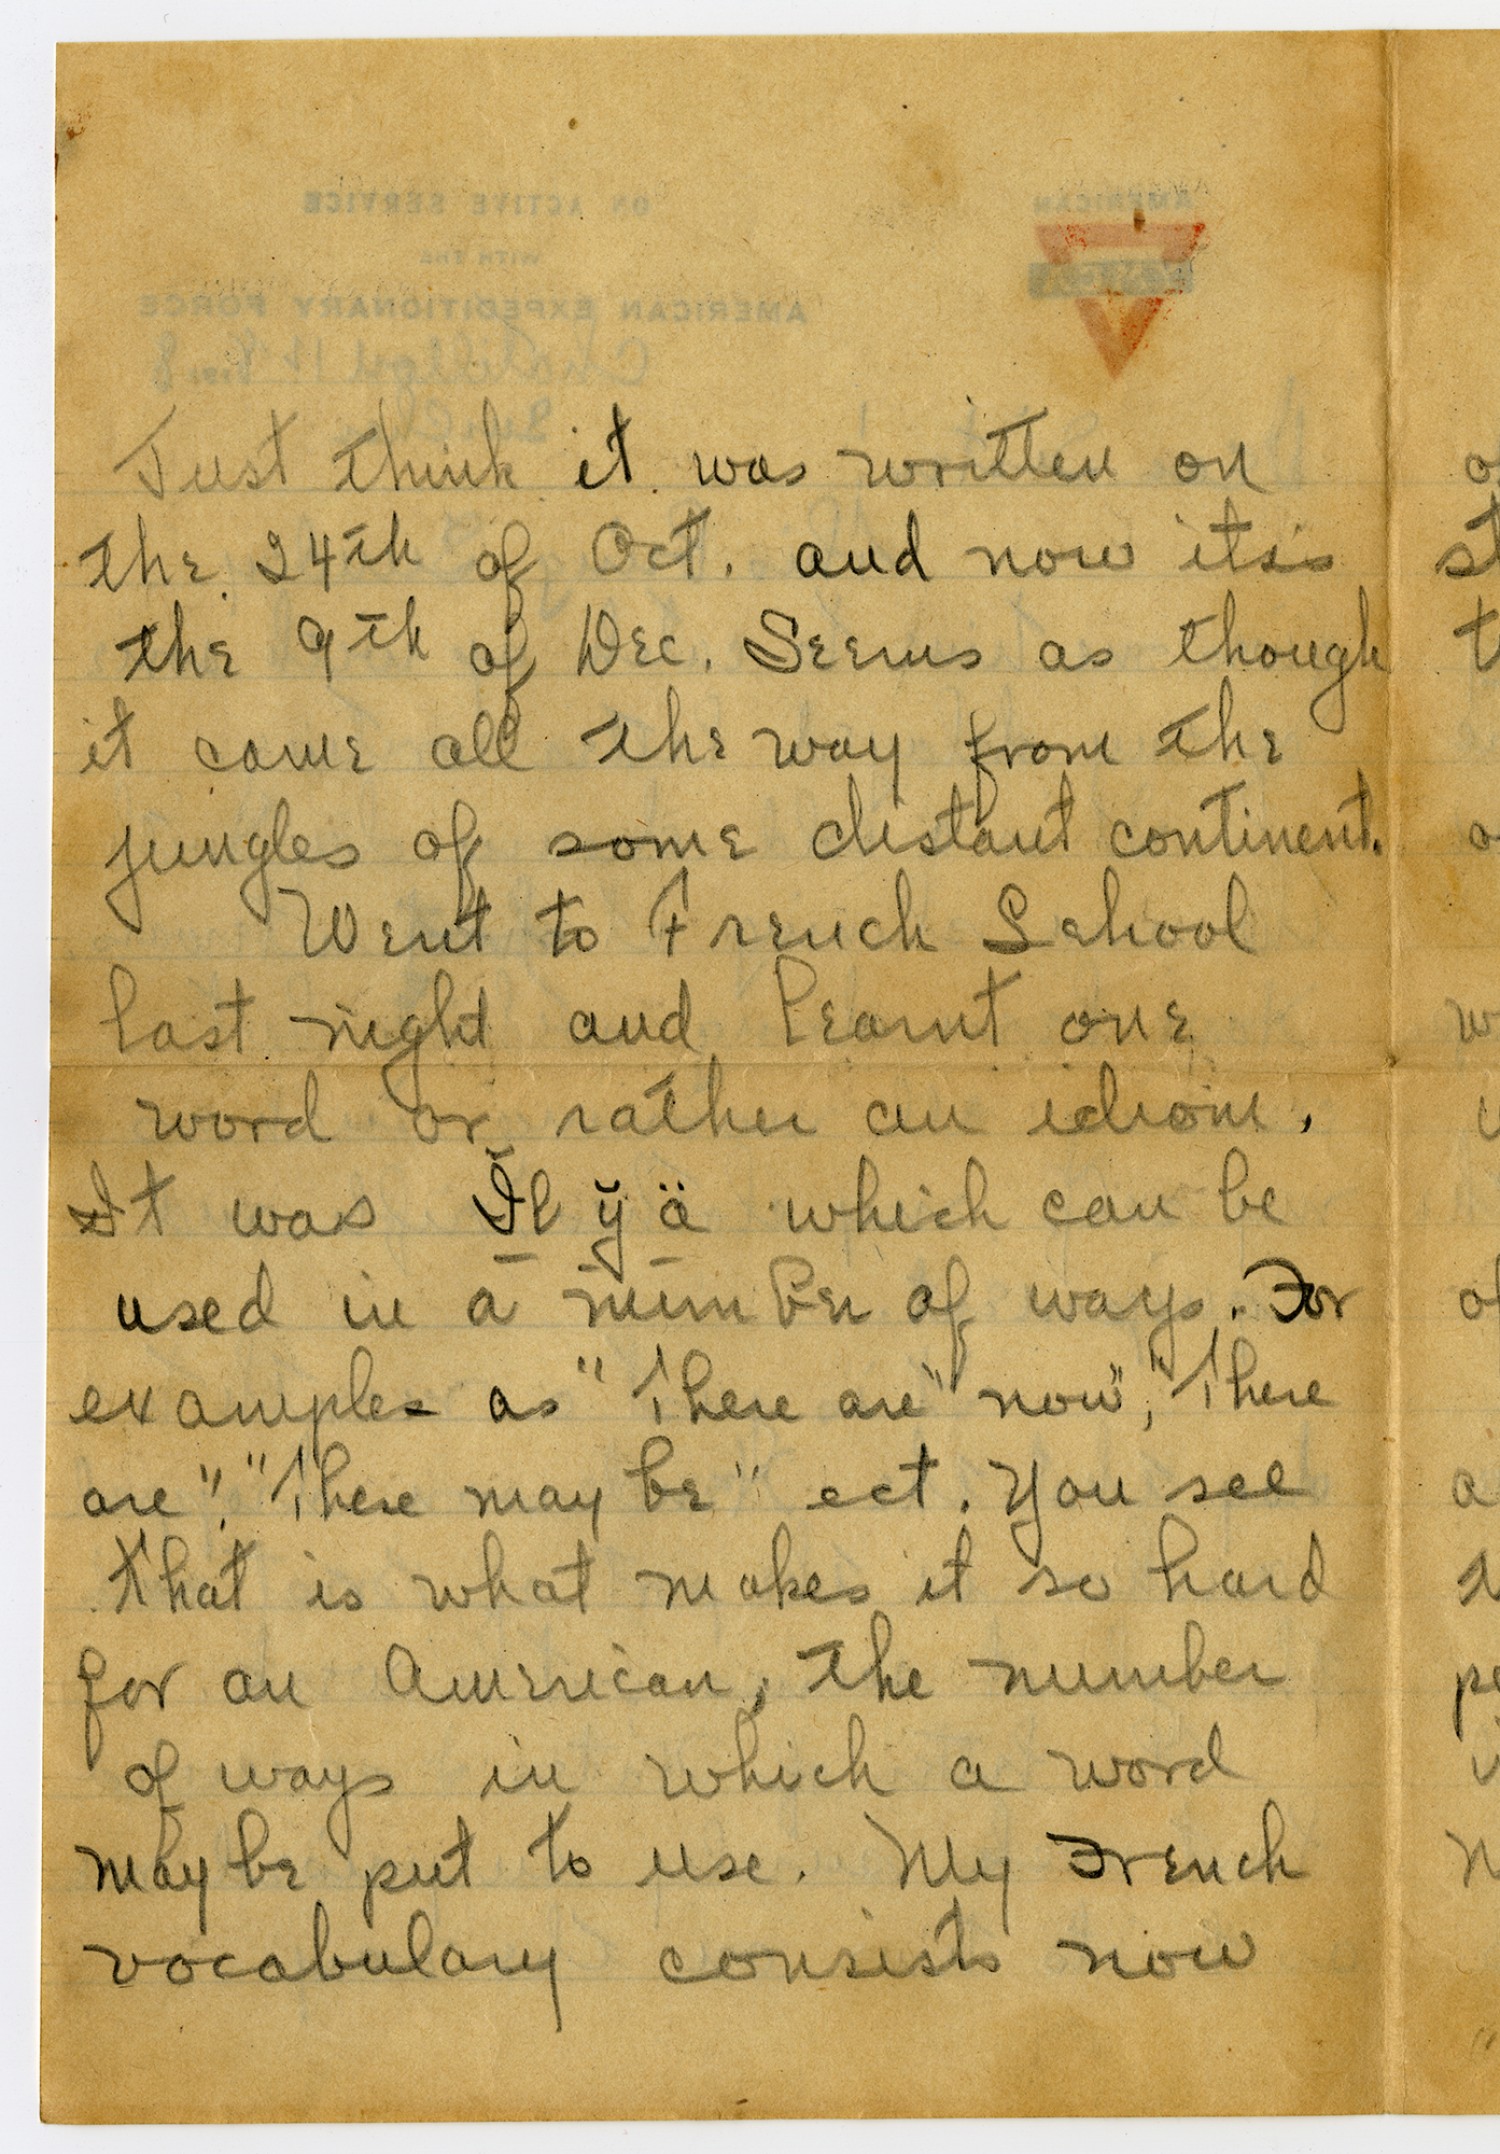 Just think it was written on
the 24th of Oct. and now its is
the 9th of Dec. Seems as though
it came all the way from the
jungles of some distant continent.
Went to French School
last night and learnt one
word or rather an idiom.
It was Ĭl y̆ ä which can be
used in a number of ways. For
examples as "There are" now", "There
are", "There may be" ect. You see
that is what makes it so hard
for an American, the number
of ways in which a word
may be put to use. My French
vocabulary consists now
ON ACTIVE SERVICE
WITH THE
AMERICAN EXPEDITIONARY FORCE
AMERICAN